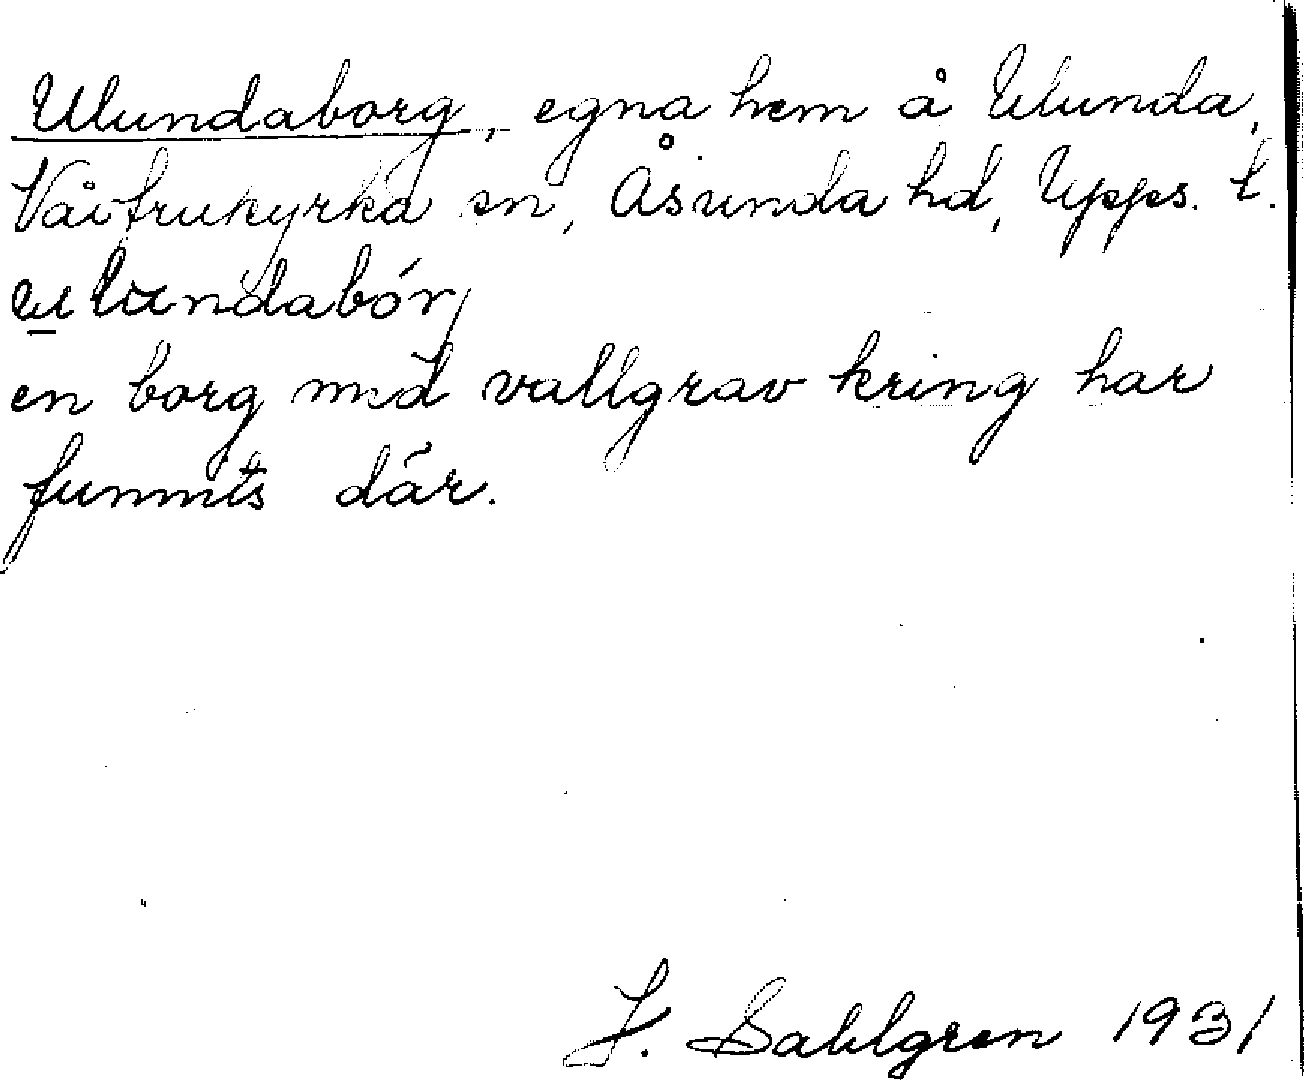 Ulundaborg, egna hem å Ulunda,
Vårfrukyrka sn, Åsunda hd, Upps. l.
ulundabórj
en borg med vallgrav kring har
funnits där.
J. Sahlgren 1931